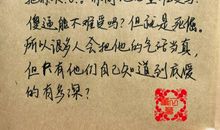 傻逼能不难受吗？但就是死倔。
所以很多人会把他的气话当真，
但只有他们自己知道到底爱
的有多深？